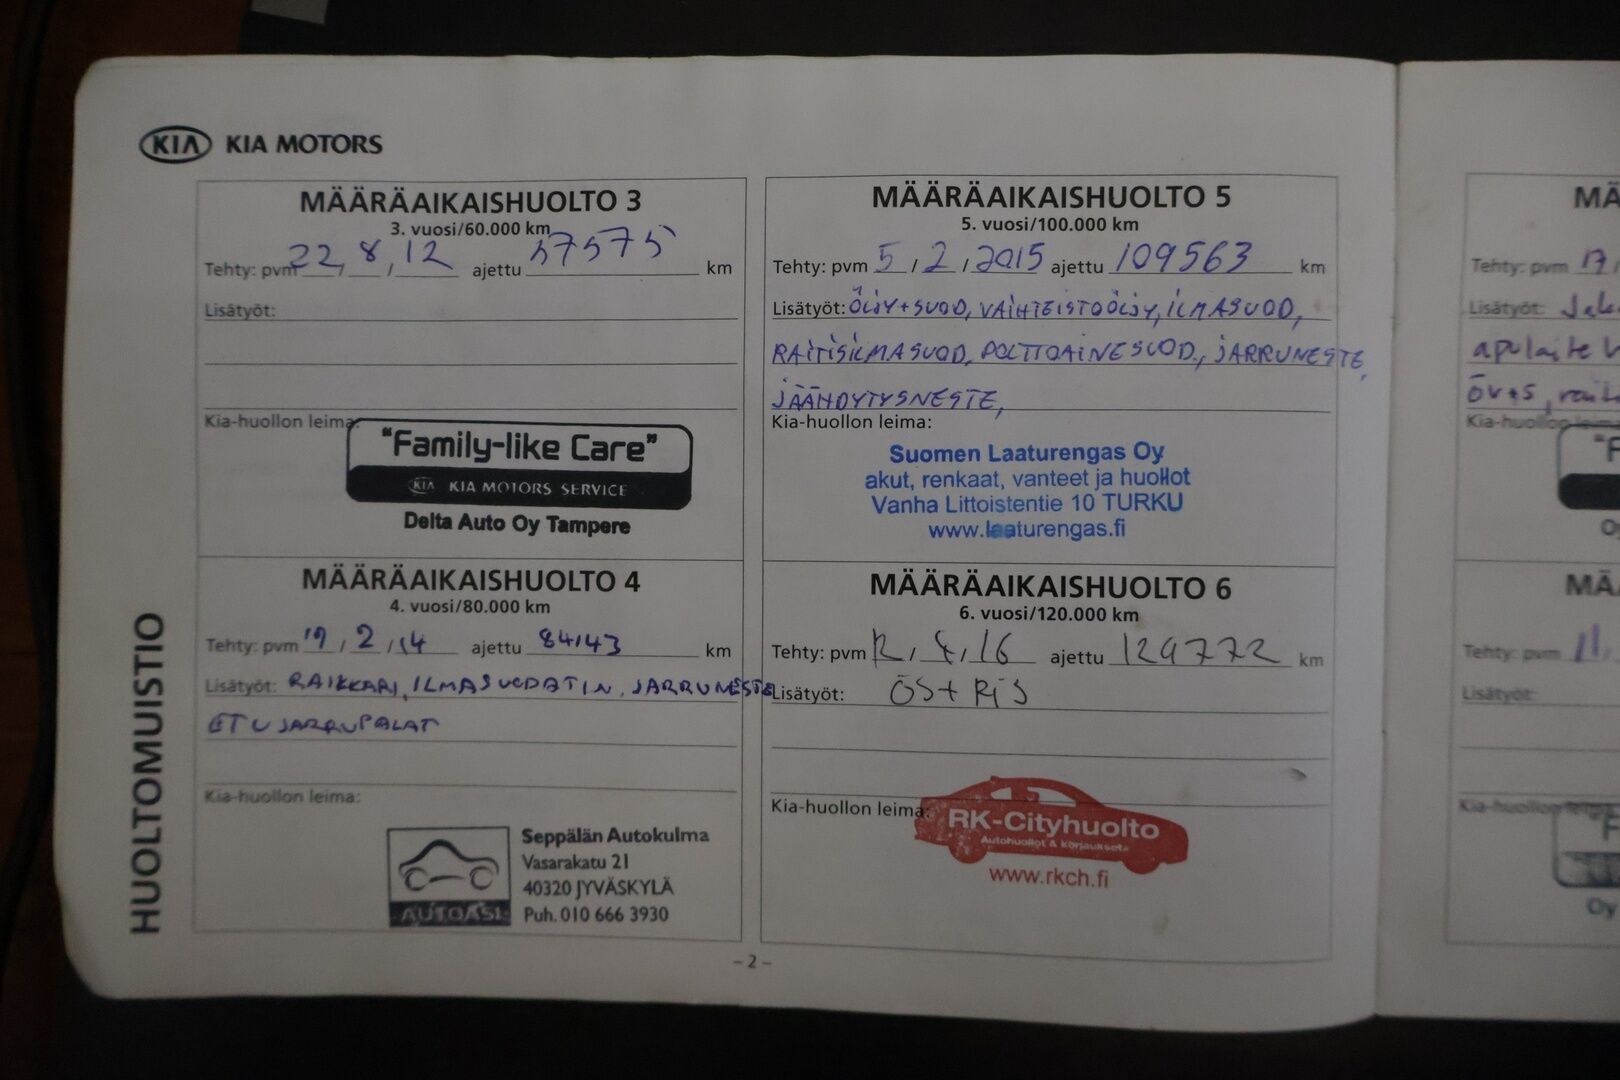 KIA KIA MOTORS
HUOLTOMUISTIO
MÄÄRÄAIKAISHUOLTO 3
3. vuosi/60.000 km
Tehty: pvm 22 / 8 / 12 ajettu 57575 km
Lisätyöt:
Kia-huollon leima:
"Family-like Care"
KIA KIA MOTORS SERVICE
Delta Auto Oy Tampere
MÄÄRÄAIKAISHUOLTO 4
4. vuosi/80.000 km
Tehty: pvm 19 / 2 / 14 ajettu 84143 km
Lisätyöt: RAIKKARI, ILMASUODATIN, JARRUNESTE
ETUJARRUPALAT
Kia-huollon leima:
AUTOASI
Seppälän Autokulma
Vasarakatu 21
40320 JYVÄSKYLÄ
Puh. 010 666 3930
MÄÄRÄAIKAISHUOLTO 5
5. vuosi/100.000 km
Tehty: pvm 5 / 2 / 2015 ajettu 109563 km
Lisätyöt: ÖLJY+SUOD, VAIHTEISTOÖLJY, ILMASUOD,
RAITISILMASUOD, POLTTOAINESUOD., JARRUNESTE,
JÄÄHDYTYSNESTE,
Kia-huollon leima:
Suomen Laaturengas Oy
akut, renkaat, vanteet ja huollot
Vanha Littoistentie 10 TURKU
www.laaturengas.fi
MÄÄRÄAIKAISHUOLTO 6
6. vuosi/120.000 km
Tehty: pvm 12 / 4 / 16 ajettu 129772 km
Lisätyöt: ÖS + RIS
Kia-huollon leima:
RK-Cityhuolto
Autohuollot & korjaukset
www.rkch.fi
- 2 -
MÄ
Tehty: pvm 17
Lisätyöt:
apulaite
öv+s,
Kia-huollon leima
"F
MÄ
Tehty: pvm 11
Lisätyöt:
Kia-huollon leima
Oy